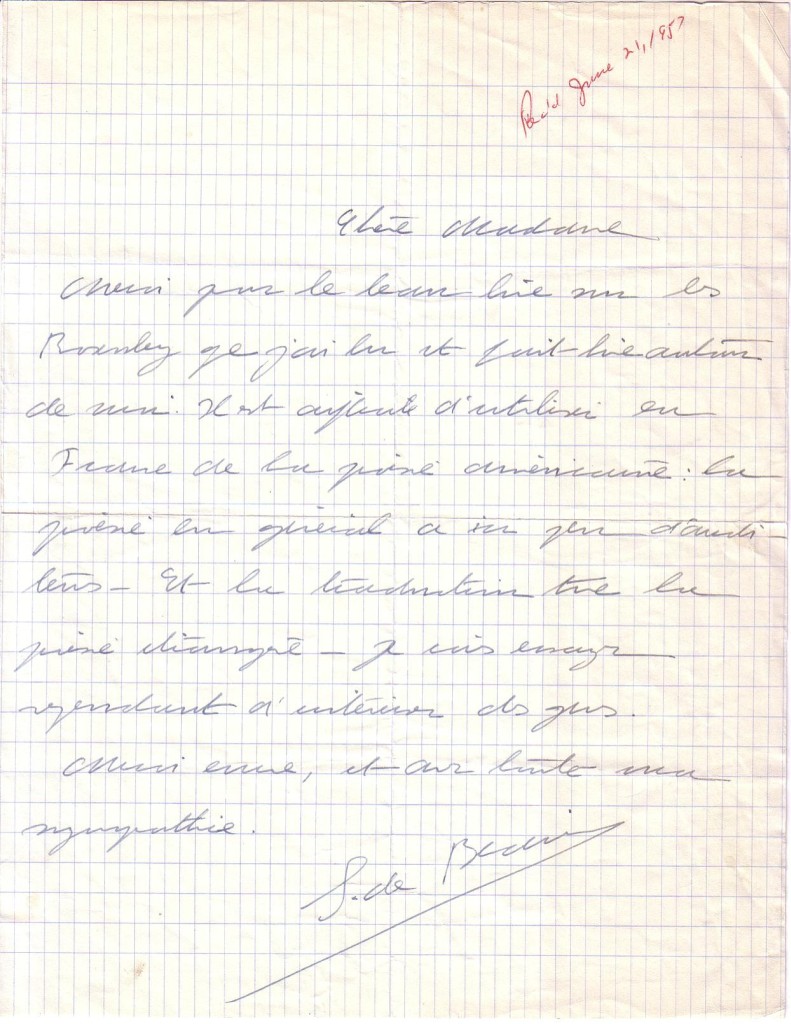 Rec'd June 21, 1957
Chère Madame
Merci pour le beau livre sur les
Rosenberg que j'ai lu et fait lire autour
de moi. Il est difficile d'utiliser en
France de la poésie américaine : la
poésie en général a ici peu d'audi-
teurs – Et la traduction tue la
poésie étrangère – Je vais essayer
cependant d'intéresser des gens.
Merci encore, et avec toute ma
sympathie.
S. de Beauvoir